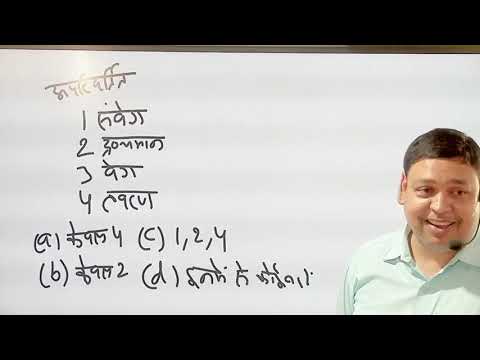 अपरिवर्तित
1 संवेग
2 द्रव्यमान
3 वेग
4 त्वरण
(a) केवल 4 (c) 1, 2, 4
(b) केवल 2 (d) इनमें से कोई नहीं